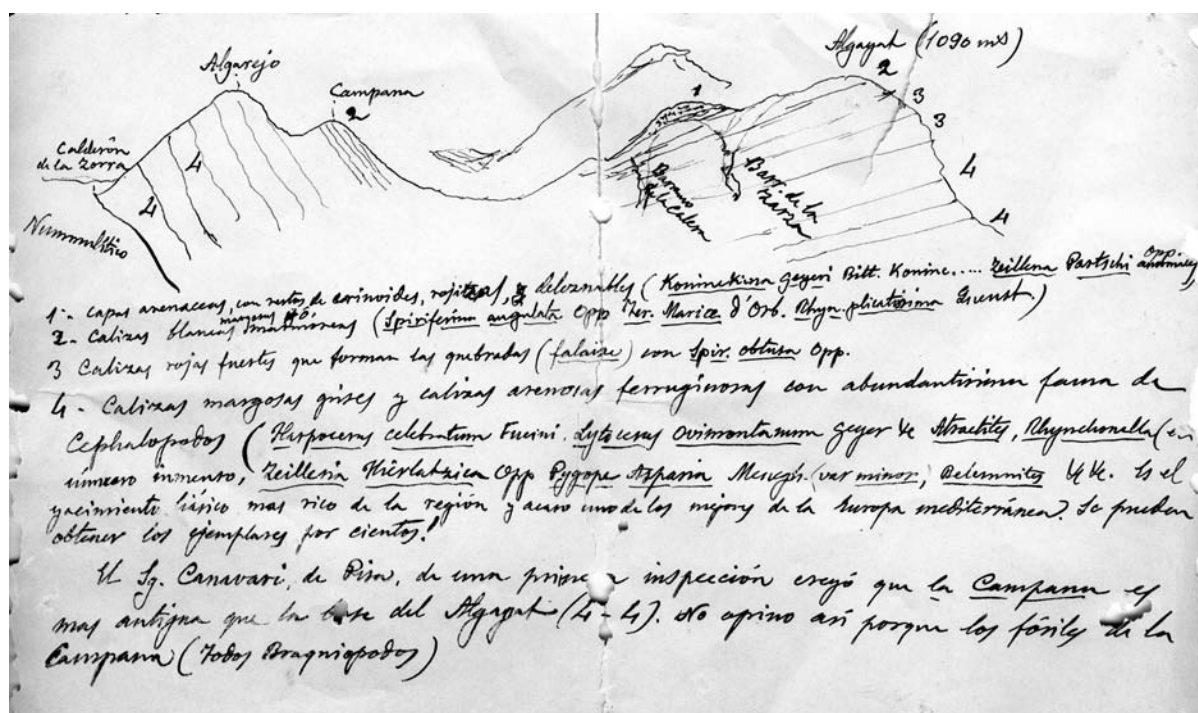 Algayat (1090 mts)
Algarejo
Campana
2
1
2
3
3
4
4
Calderón
de la Zorra
4
4
Nummulítico
Barranco
de la Calera
Barr. de la
Zarza
1.- Capas arenaceas, con restos de crinoides, rojizas, y deleznables (Koninckina Geyeri Bitt. Koninc.... Zeilleria Partschi Opp.
2.- Calizas blancas marmóreas (Spiriferina angulata Opp Ter. Mariæ d'Orb. Rhyn. plicatissima Quenst.)
3 Calizas rojas fuertes que forman las quebradas (falaise) con Spir. obtusa Opp.
4.- Calizas margosas grises y calizas arenosas ferruginosas con abundantisima fauna de
Cephalopodos (Harpoceras celebratum Fucini. Lytoceras ovimontanum Geyer &c Atractites, Rhynchonella (en
número inmenso, Zeilleria Hierlatzica Opp Pygope Aspasia Menegh. (var minor), Belemnites &c &c. Es el
yacimiento liásico mas rico de la región y acaso uno de los mejores de la Europa mediterránea. Se pueden
obtener los ejemplares por cientos!
El Sg. Canavari, de Pisa, de una primera inspección creyó que la Campana es
mas antigua que la base del Algayat (4-4). No opino asi porque los fósiles de la
Campana (Todos Braquiopodos)